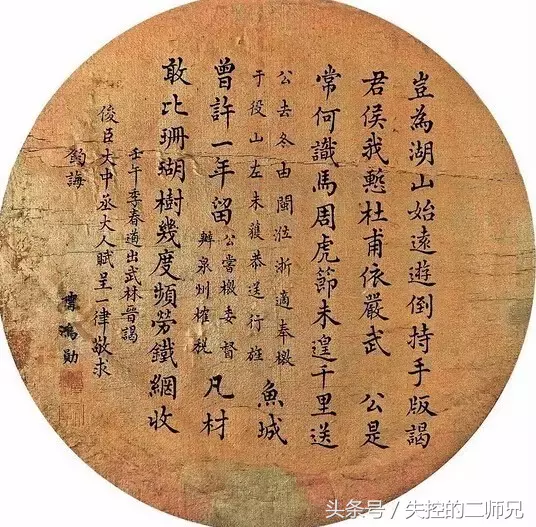 豈為湖山始遠遊倒持手版謁
君侯我慙杜甫依嚴武 公是
常何識馬周虎節未遑千里送
公去冬由閩涖浙適奉檄
于役山左未獲恭送行旌
魚城
曾許一年留
公嘗檄委督
辦泉州榷稅
凡材
敢比珊瑚樹幾度頻勞鐵網收
壬午季春道出武林晉謁
俊臣大中丞大人賦呈一律敬求
鈞誨
曹鴻勛
头条号/失控的二师兄